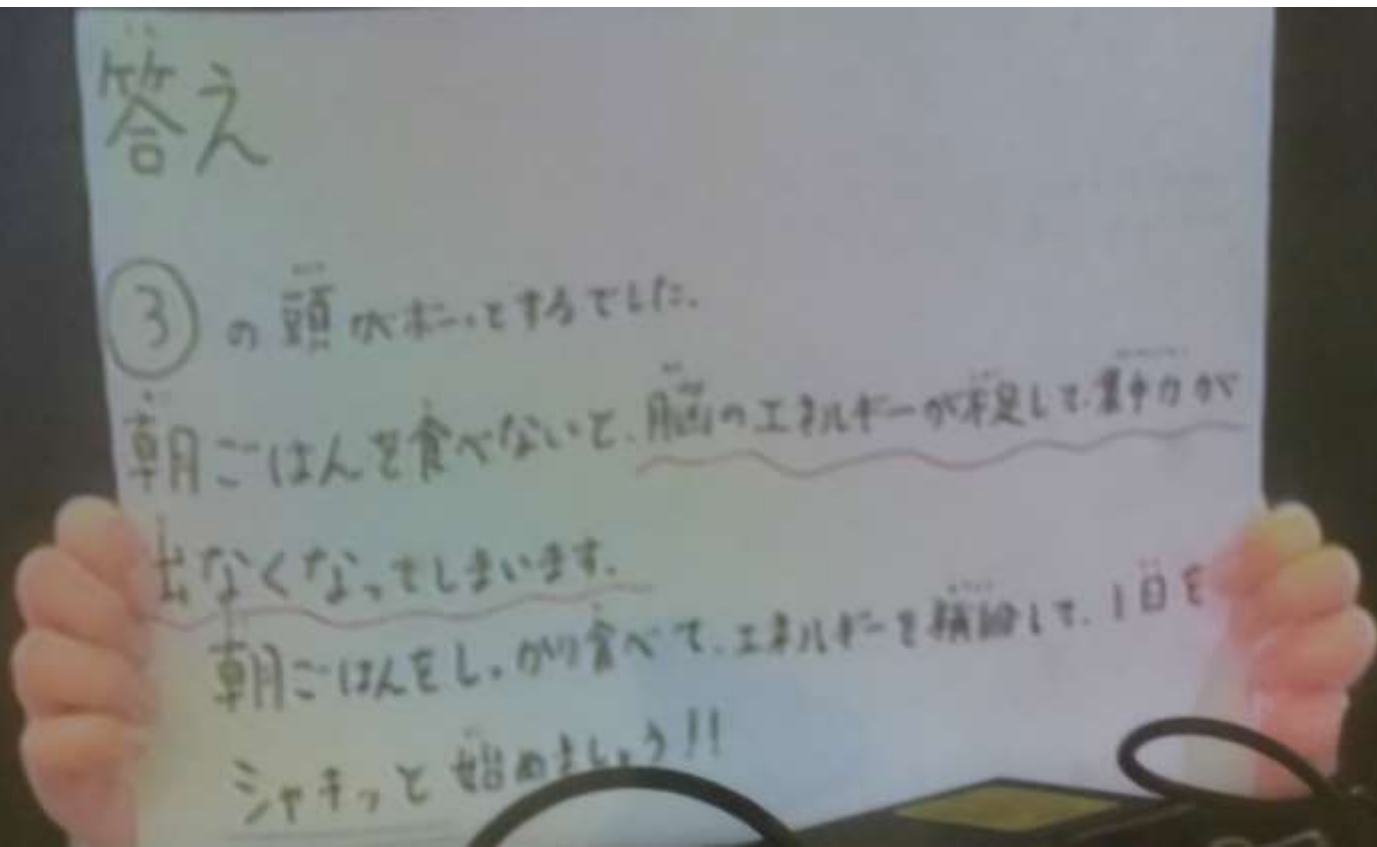 答え
③の頭がボーッとするでした。
朝ごはんを食べないと、脳のエネルギーが不足して、集中力が
出なくなってしまいます。
朝ごはんをしっかり食べて、エネルギーを補給して、1日を
シャキッと始めましょう!!